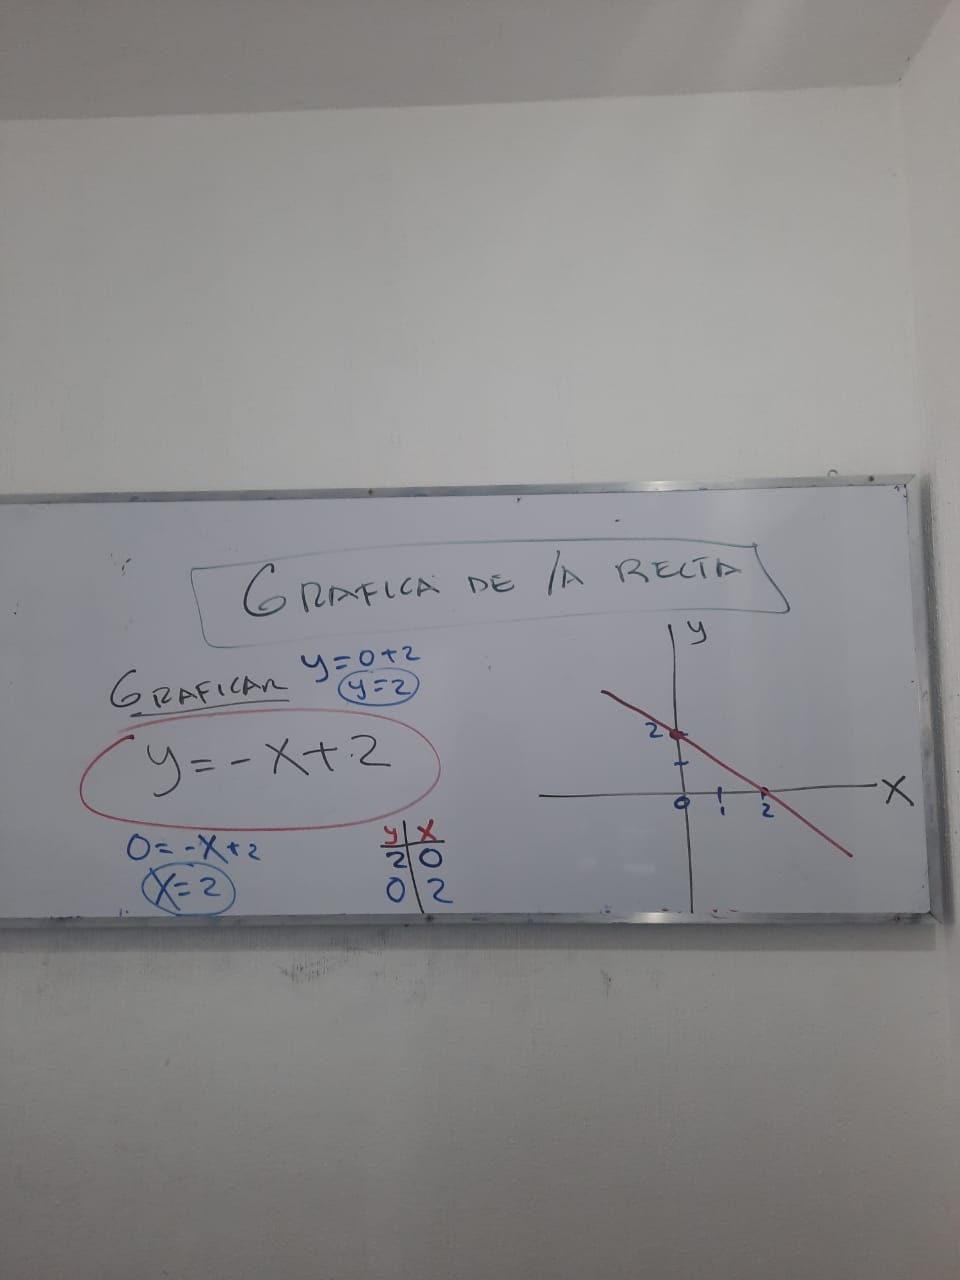 GRAFICA DE lA RECTA
GRAFICAR
y=0+2
y=2
y=-x+2
0=-x+2
x=2
y x
2 0
0 2
y
2
0 1 2
X